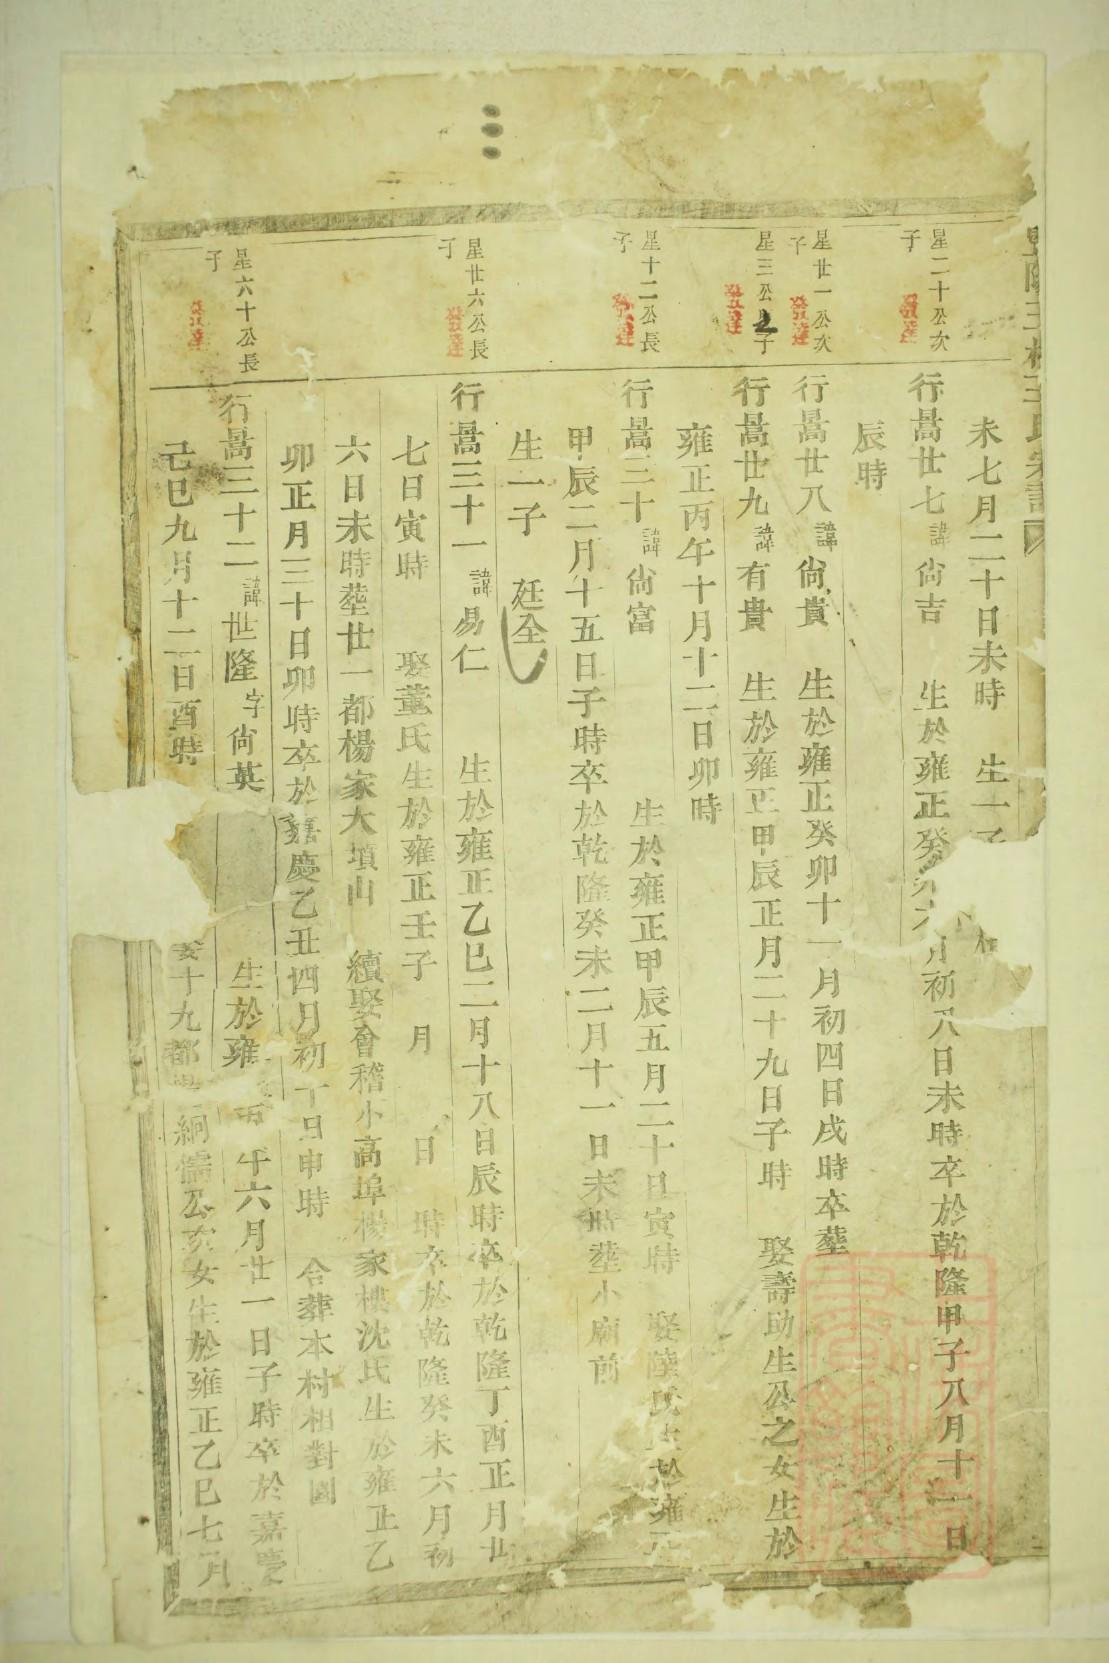 未七月二十日未時　生一子
星二十公次子　發達
行暠廿七諱尙吉　生於雍正癸　月初八日未時卒於乾隆甲子八月十一日
辰時
星廿一公次子　發達
行暠廿八諱尙貴　生於雍正癸卯十一月初四日戌時卒塟
星三公之子　發達
行暠廿九諱有貴　生於雍正甲辰正月二十九日子時　娶壽助生公之女生於
雍正丙午十月十二日卯時
星十二公長子　發達
行暠三十諱尙富　生於雍正甲辰五月二十日寅時　娶陸氏生於雍正
甲辰二月十五日子時卒於乾隆癸未二月十一日未時塟小廟前
生一子　廷全
星廿六公長子　發達
行暠三十一諱易仁　生於雍正乙巳二月十八日辰時卒於乾隆丁酉正月廿
七日寅時　娶董氏生於雍正壬子　月　日　時卒於乾隆癸未六月初
六日未時塟廿一都楊家大墳山　續娶會稽小高埠楊家樓沈氏生於雍正乙
卯正月三十日卯時卒於嘉慶乙丑四月初十日申時　合葬本村相對園
星六十公長子　發達
行暠三十二諱世隆字尙英　生於雍　午六月廿一日子時卒於嘉慶
己巳九月十二日酉時　娶十九都　絅儒公次女生於雍正乙巳七月